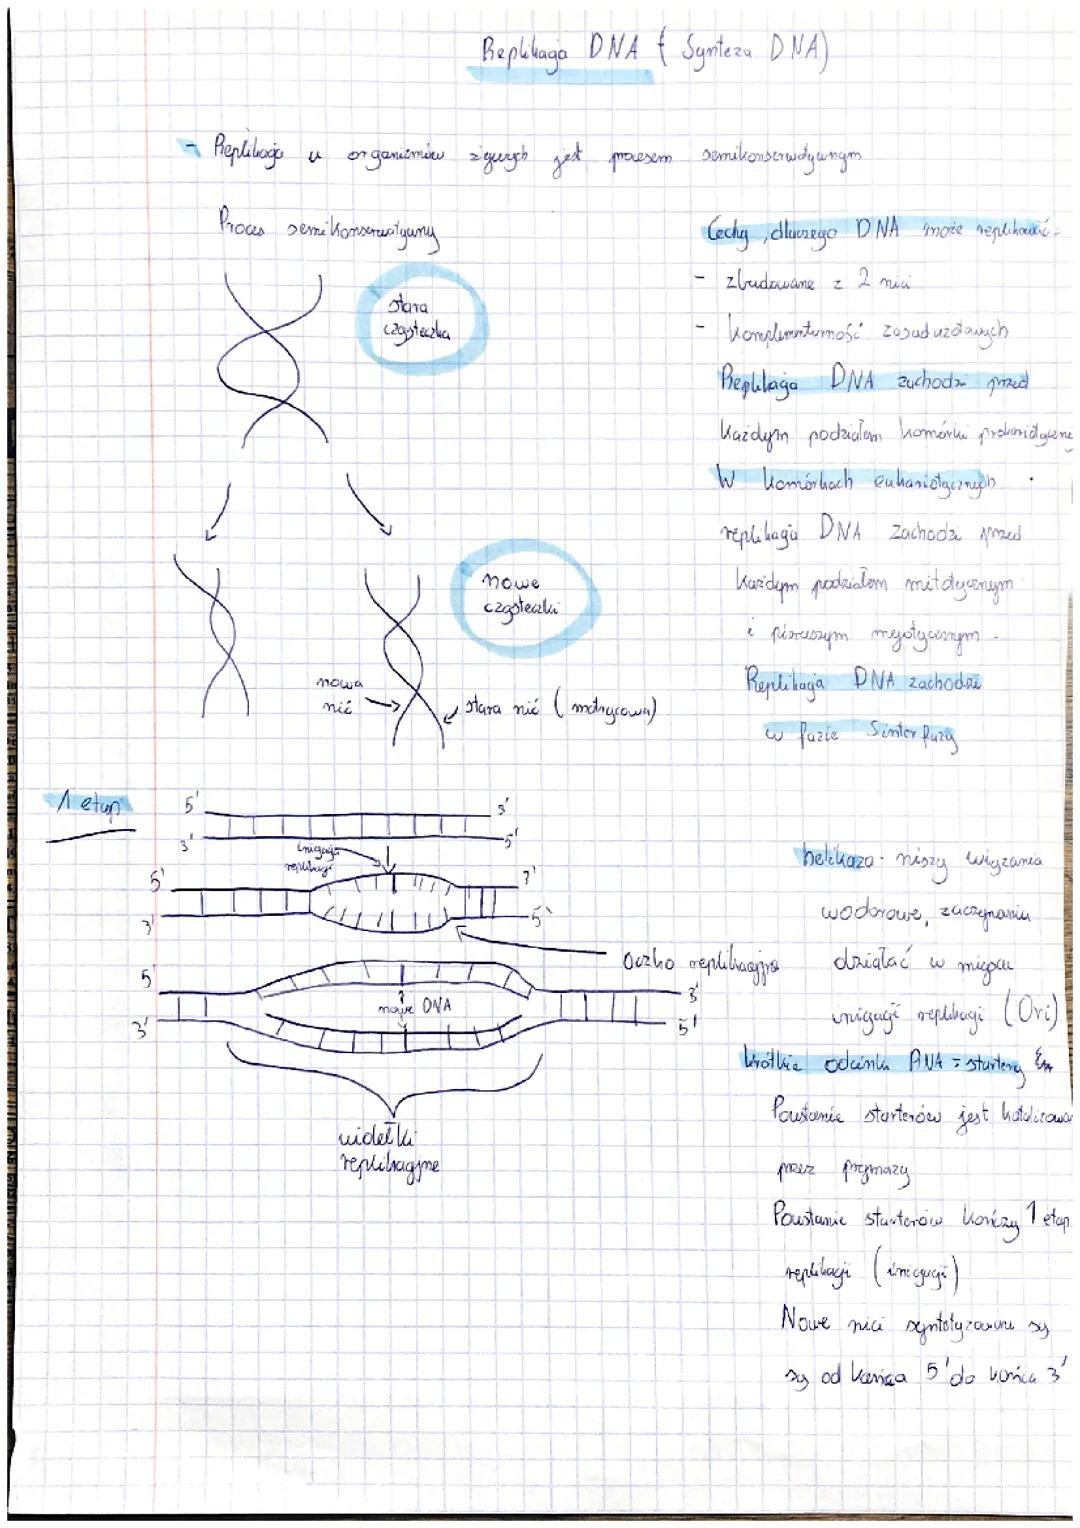 Replikacja DNA (Synteza DNA)
- Replikacja u organizmów żywych jest procesem semikonserwatywnym
Proces semikonserwatywny
stara
cząsteczka
nowe
cząsteczki
nowa
nić
stara nić (matrycowa)
Cechy, dlaczego DNA może replikować:
- zbudowane z 2 nici
- Komplementarność zasad azotowych
Replikacja DNA zachodzi przed
każdym podziałem komórki prokariotycznej
W komórkach eukariotycznych
replikacja DNA zachodzi przed
każdym podziałem mitotycznym
i pierwszym mejotycznym.
Replikacja DNA zachodzi
w fazie S interfazy
1 etap
5' 3'
3' 5'
inicjacja
replikacji
5' 3'
3' 5'
oczko replikacyjne
5' 3'
nowe DNA
3' 5'
widełki
replikacyjne
helikaza - niszy wiązania
wodorowe, zaczynania
działać w miejscu
inicjacji replikacji (Ori)
krótkie odcinki RNA = startery
Powstanie starterów jest
przez prymazy
Powstanie starterów kończy 1 etap
replikacji (inicjacji)
Nowe nici syntetyzowane są
są od końca 5' do końca 3'